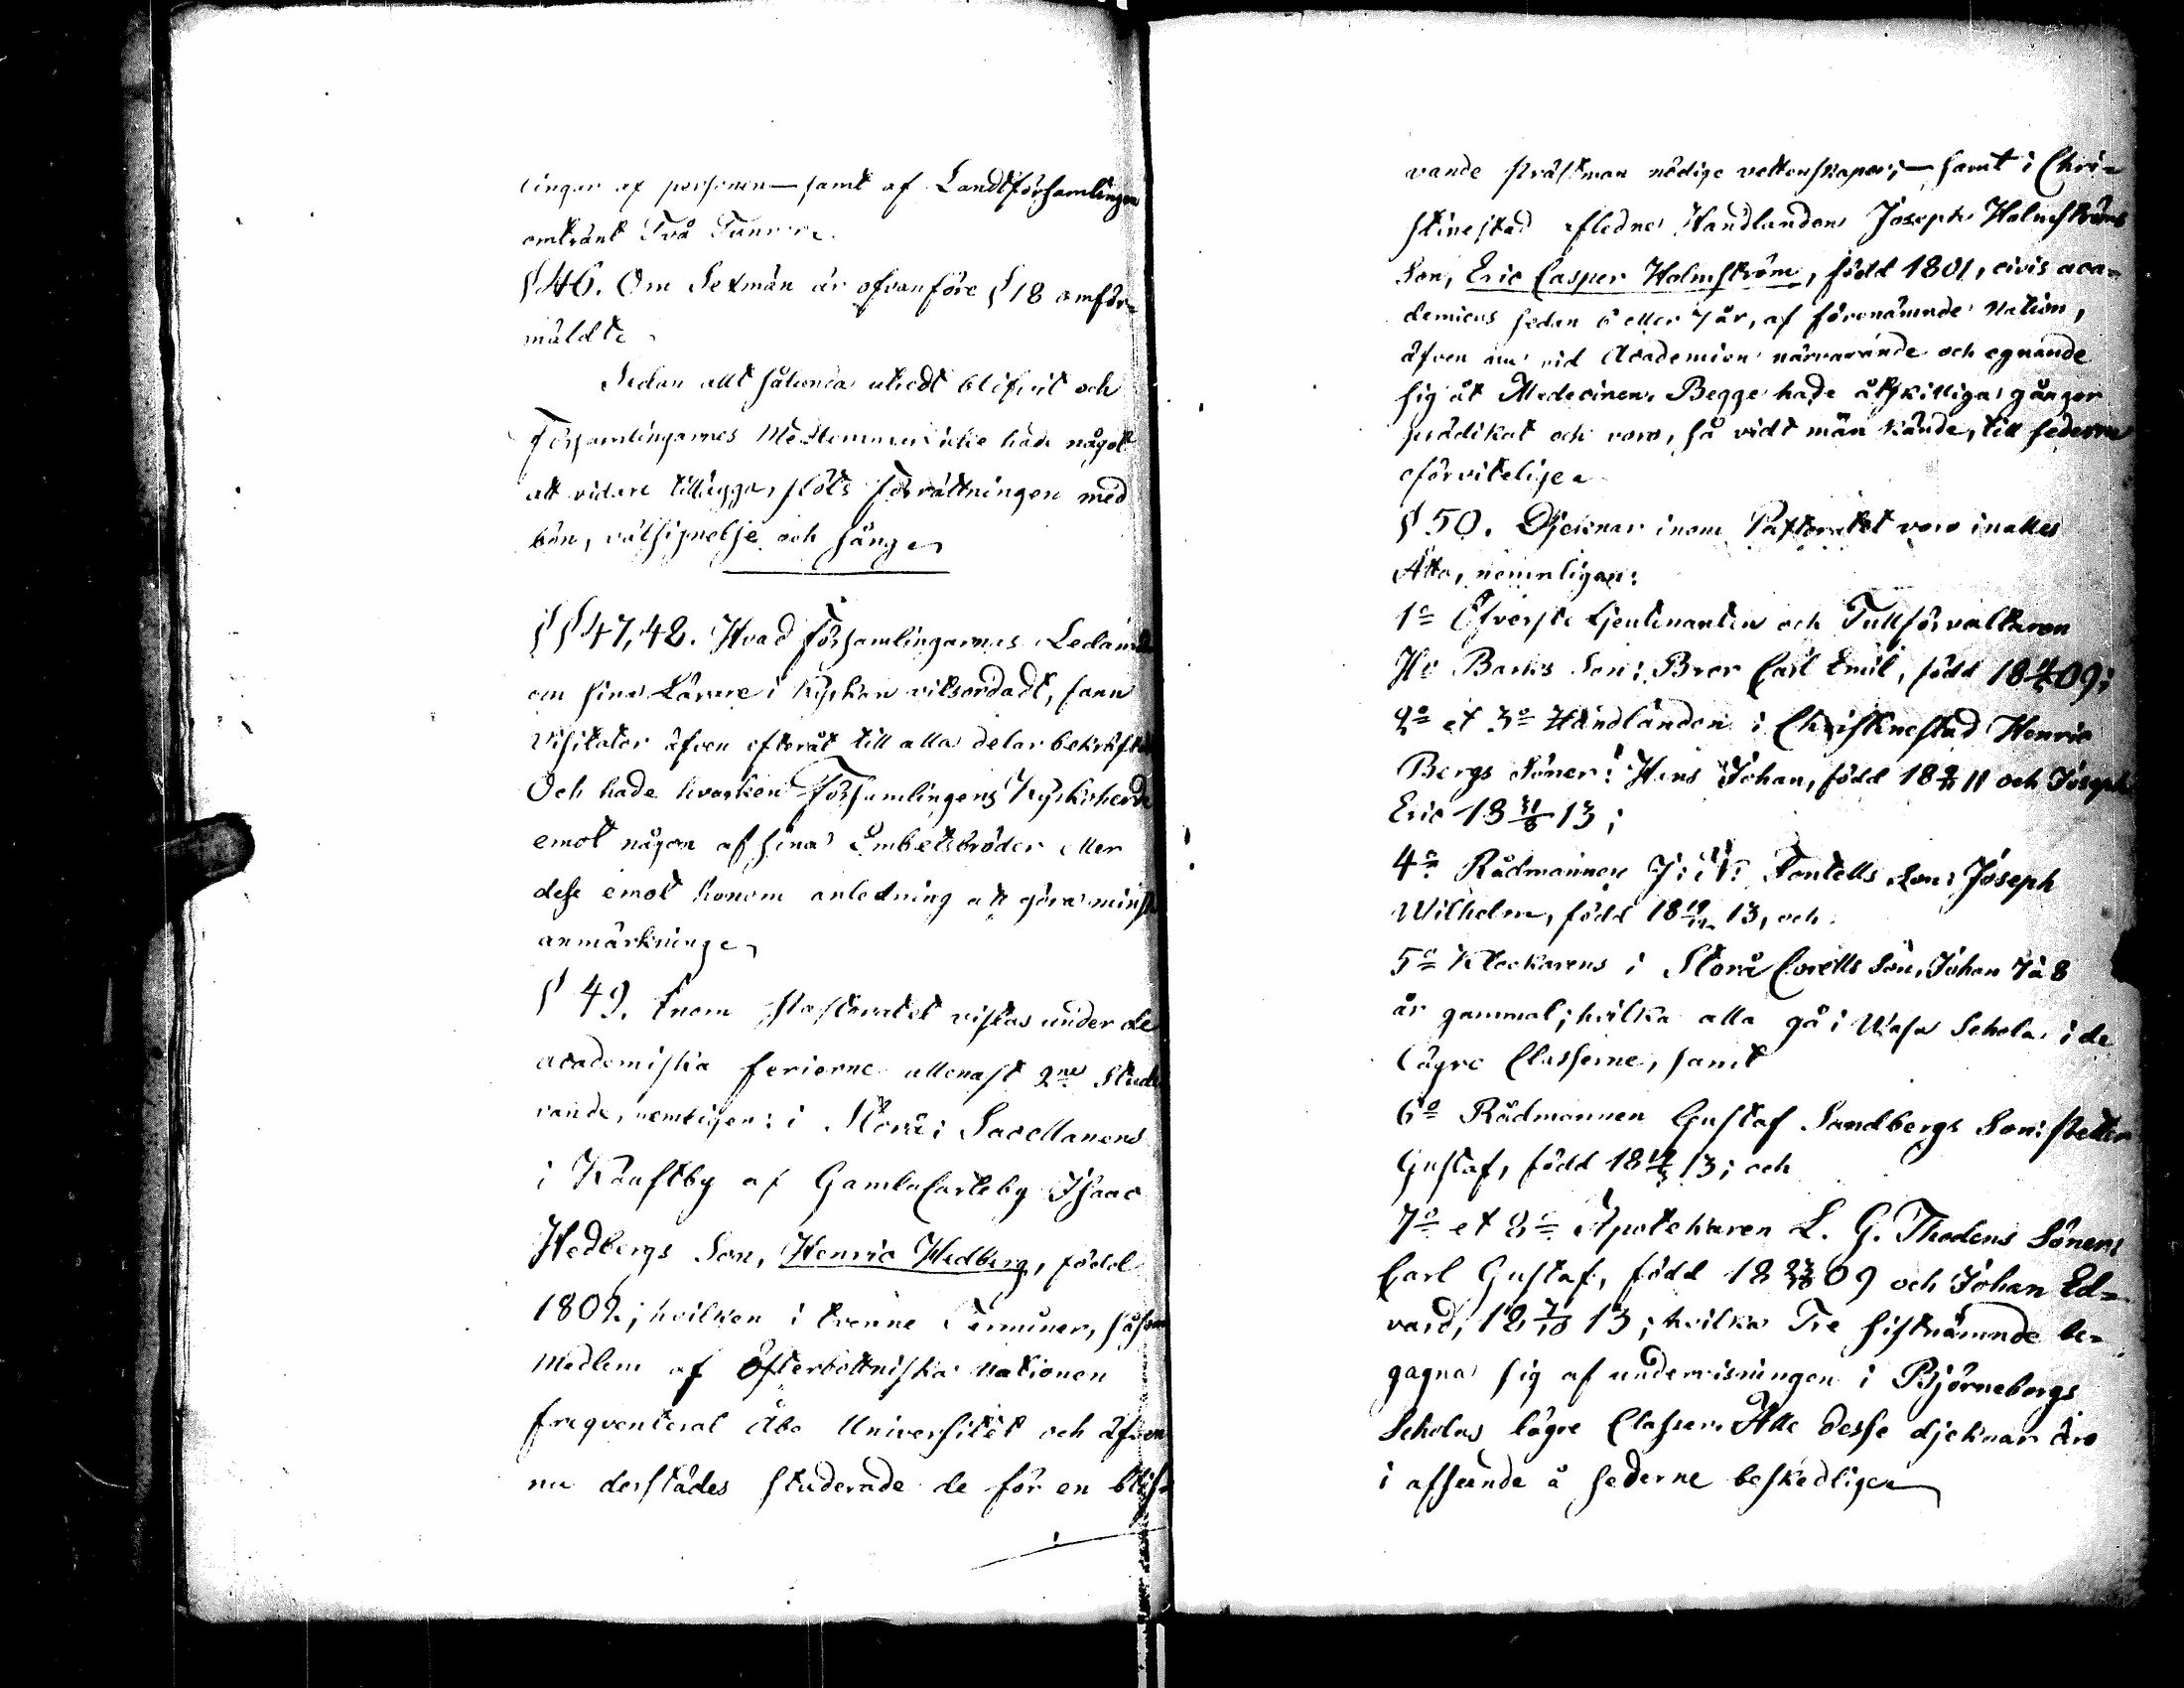 lingar af personen — samt af Landtförsamlingen
omkränt Två Tunnor.
§ 46. Om Sexmän är ofvanföre § 18 omför-
mäldt.
Sedan allt således utredt blifvit och
Församlingarnes Medlemmar icke hade något
att vidare tillägga, slöts Förrättningen med
bön, välsignelse och sång.
§§ 47, 48. Hvad Församlingarnes Ledamöter
om sina Lärare i Kyrkan vitsordadt, fann
Visitator äfven efteråt till alla delar bekräftat.
Och hade hvarken Församlingens Kyrkoherde
emot någon af sina Embetsbröder eller
desse emot honom anledning att göra minsta
anmärkning.
§ 49. Inom Pastoratet vistas under de
academiska ferierne allenast 2ne Stude-
rande, nemligen: i Storå; Sacellanens
i Kauftby af Gamlacarleby Isaac
Hedbergs Son, Henric Hedberg, född
1802; hvilken i trenne Terminer, såsom
Medlem af Österbottniska Nationen
freqventerat Åbo Universitet och äfven
nu derstädes studerade de för en blif-
vande Prästman nödige vettenskaper; — samt i Chri-
stinestad afledne Handlanden Joseph Holmströms
Son, Eric Casper Holmström, född 1801, civis aca-
demicus sedan 6 eller 7 år, af förenämnde Nation,
äfven nu vid Academien närvarande och egnande
sig åt Medecinen. Begge hade åtskilliga gånger
prädikat och voro, så vidt män kände, till sederne
oförvitelige.
§ 50. Djeknar inom Pastoratet voro inalles
Åtta, nemnligen:
1o Öfverste Lieutinanten och Tullförvaltaren
Hr Bancks Son: Bror Carl Emil, född 18 09;
2o et 3o Handlanden i Christinestad Henric
Bergs Söner: Hans Johan, född 18 11 och Joseph
Eric 18 31/8 13;
4o Rådmannen J: Fontells Son: Joseph
Wilhelm, född 18 13, och
5o Klockarens i Storå Corells Son, Johan 7 à 8
år gammal; hvilka alla gå i Wasa Schola i de
lägre Classerne, samt
6o Rådmannen Gustaf Sandbergs Son: Petter
Gustaf, född 18 13; och
7o et 8o Apotekaren L. G. Thodens Söner:
Carl Gustaf, född 18 09 och Johan Ed-
vard, 18 7/10 13; hvilka Tre sistnämnde be-
gagna sig af undervisningen i Björneborgs
Scholas lägre Classer. Alla desse djeknar äro
i afseende å sederne beskedlige.